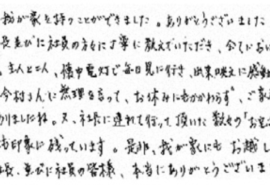 我が家を持つことができました。ありがとうございました
長並びに社員の方々に丁寧に教えていただき、今でおい
。主人と二人、懐中電灯で毎日見に行き、出来映えに感動
今村さんに無理を言って、お休みにもかかわらず、ご家
かりましたね。又、社長に連れて行って頂いた数々の"お
も印象に残っています。是非、我が家にもお越し
長、並びに社員の皆様、本当にありがとうございま